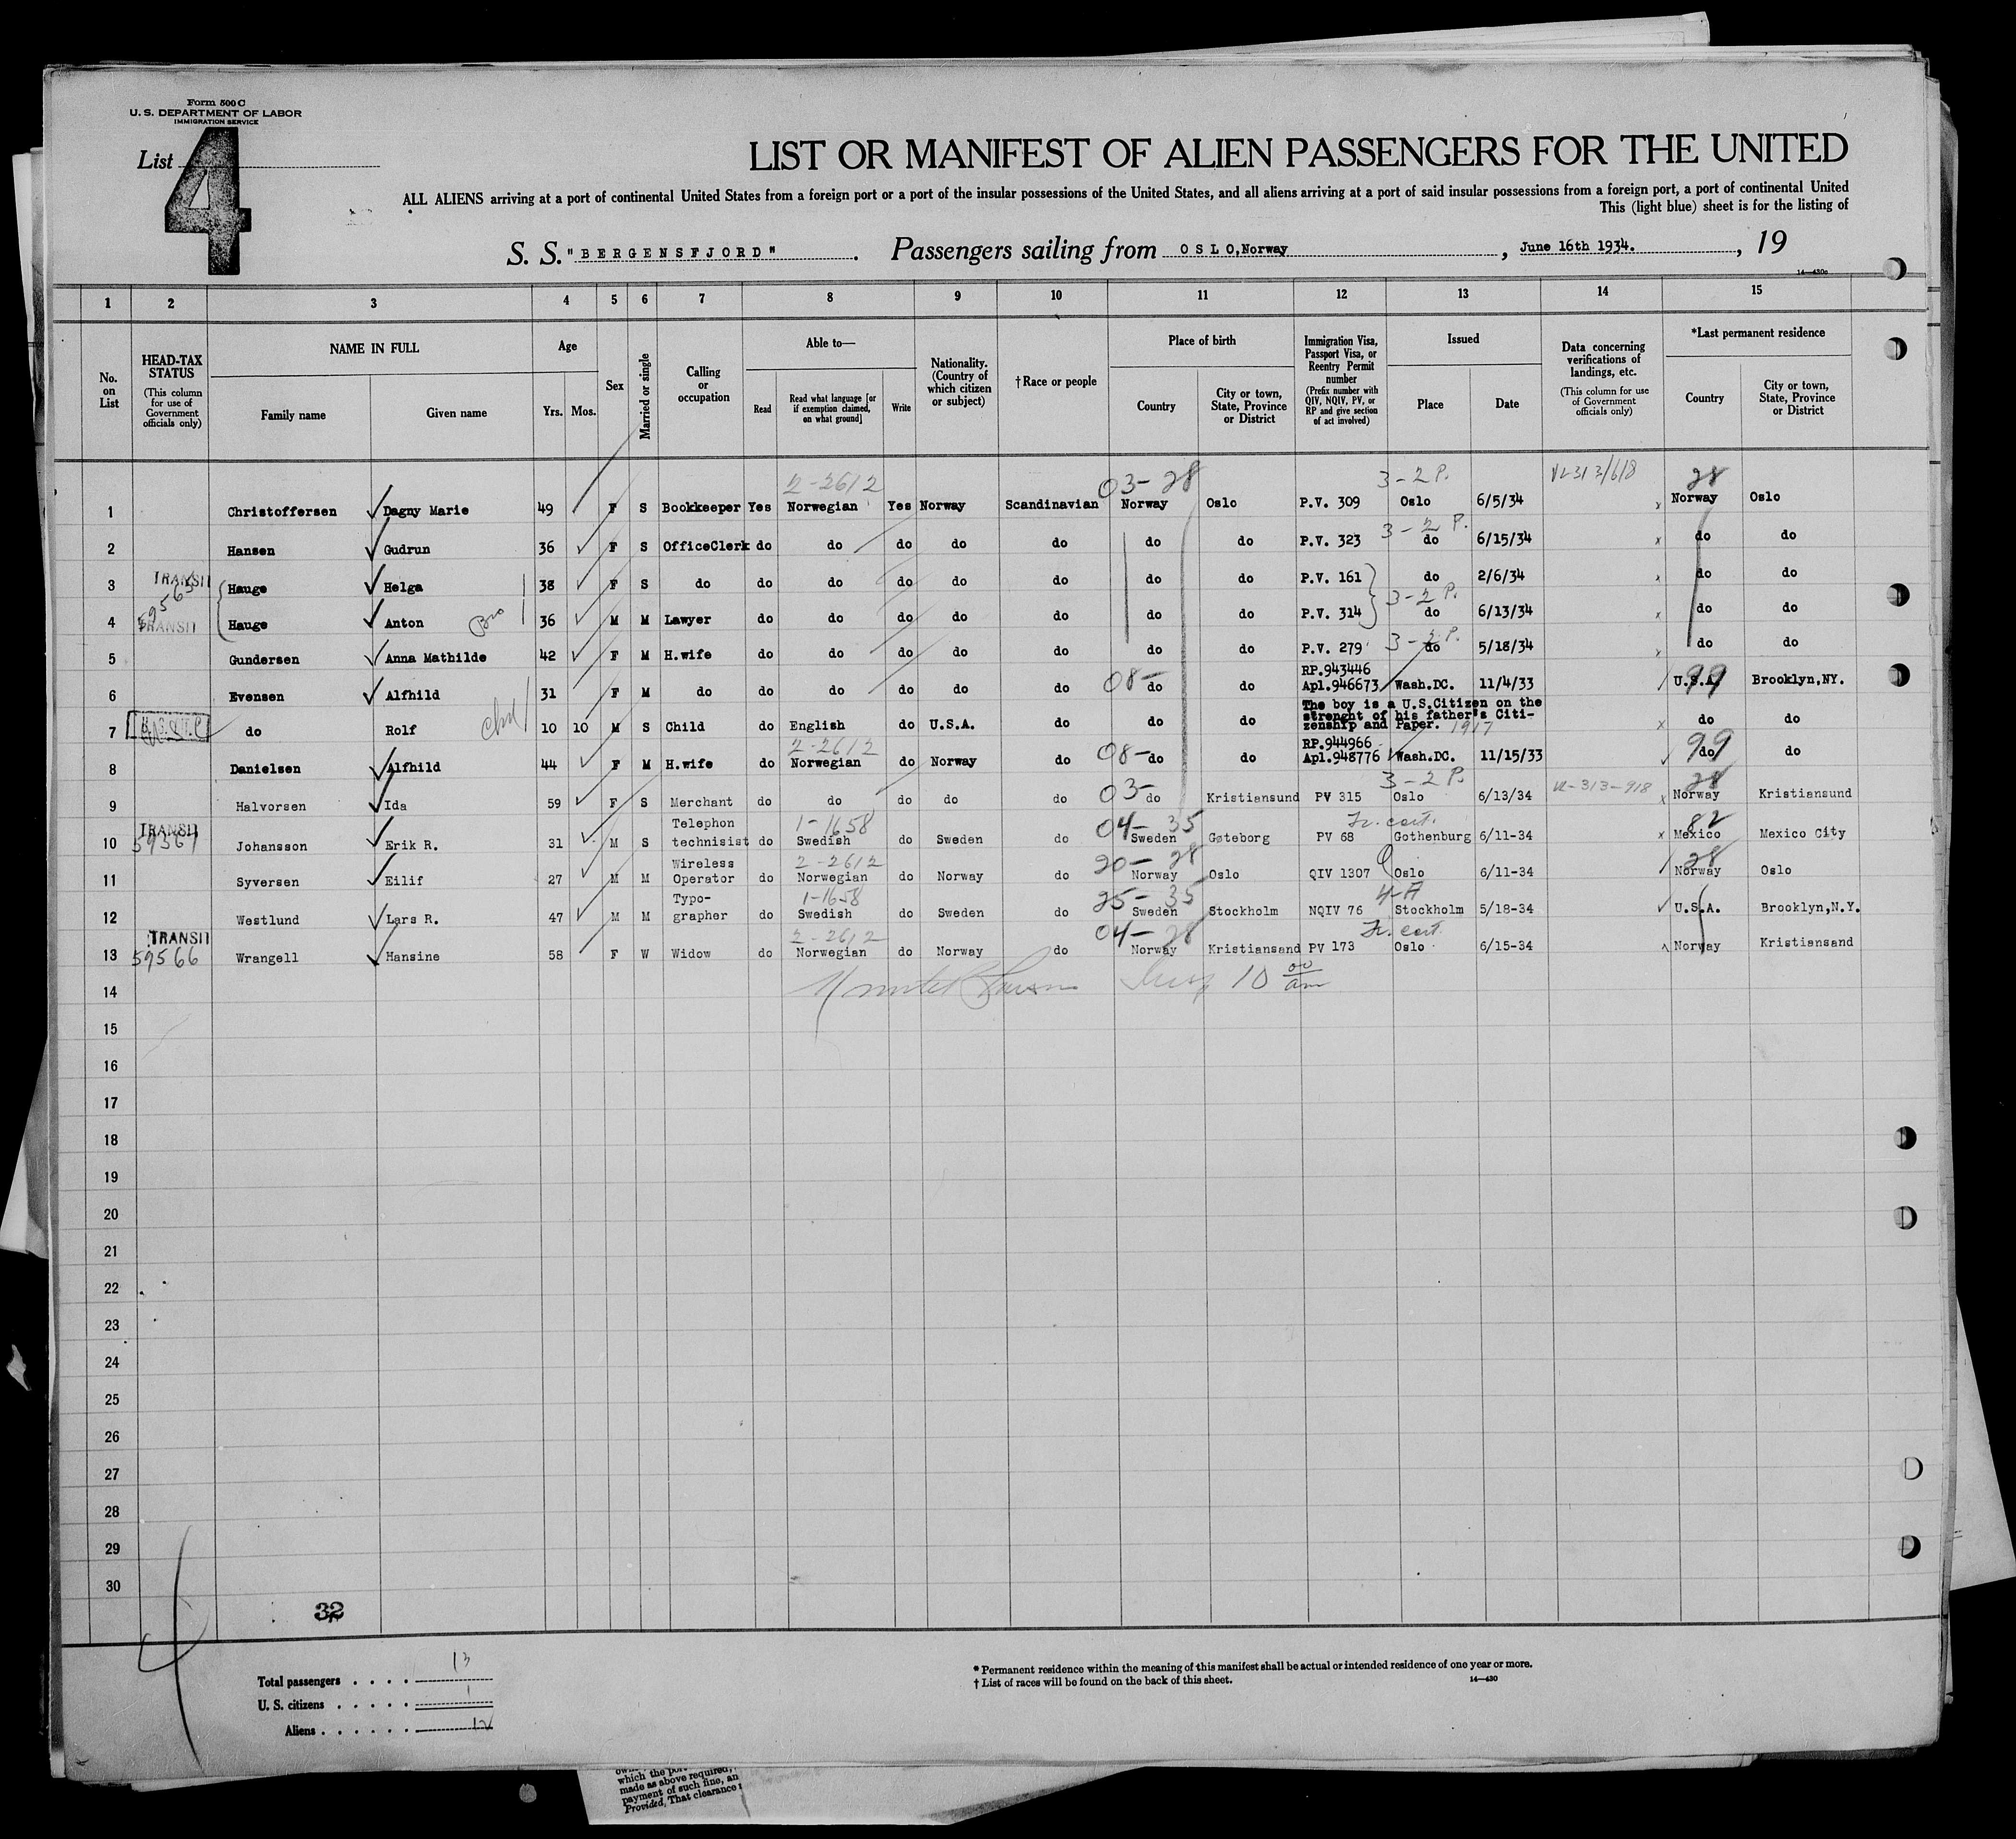 Form 500 C
U. S. DEPARTMENT OF LABOR
IMMIGRATION SERVICE
List 4
LIST OR MANIFEST OF ALIEN PASSENGERS FOR THE UNITED
ALL ALIENS arriving at a port of continental United States from a foreign port or a port of the insular possessions of the United States, and all aliens arriving at a port of said insular possessions from a foreign port, a port of continental United
This (light blue) sheet is for the listing of
S. S. "BERGENSFJORD". Passengers sailing from OSLO, Norway, June 16th 1934., 19
14—430c
1 2 3 4 5 6 7 8 9 10 11 12 13 14 15
No. on List
HEAD-TAX STATUS (This column for use of Government officials only)
NAME IN FULL Family name Given name
Age Yrs. Mos.
Sex
Married or single
Calling or occupation
Able to— Read Read what language [or if exemption claimed, on what ground] Write
Nationality. (Country of which citizen or subject)
†Race or people
Place of birth Country City or town, State, Province or District
Immigration Visa, Passport Visa, or Reentry Permit number (Prefix number with QIV, NQIV, PV, or RP and give section of act involved)
Issued Place Date
Data concerning verifications of landings, etc. (This column for use of Government officials only)
*Last permanent residence Country City or town, State, Province or District
2-2612 03-28 3-2 P. 28
1 Christoffersen Dagny Marie 49 F S Bookkeeper Yes Norwegian Yes Norway Scandinavian Norway Oslo P.V. 309 Oslo 6/5/34 Norway Oslo
3-2 P.
2 Hansen Gudrun 36 F S OfficeClerk do do do do do do do P.V. 323 do 6/15/34 do do
3 TRANSIT Hauge Helga 38 F S do do do do do do do do P.V. 161 do 2/6/34 do do
59565 3-2 P.
4 TRANSIT Hauge Anton Bro 36 M M Lawyer do do do do do do do P.V. 314 do 6/13/34 do do
3-2 P.
5 Gundersen Anna Mathilde 42 F M H.wife do do do do do do do P.V. 279 do 5/18/34 do do
RP.943446
6 Evensen Alfhild 31 F M do do do do do do 08- do do Apl.946673 Wash.DC. 11/4/33 U.S.A. 99 Brooklyn,NY.
The boy is a U.S.Citizen on the
strenght of his father's Citi-
7 do Rolf 10 10 M S Child do English do U.S.A. do do do zenship and Paper. 1917 do do
2-2612 RP.944966
8 Danielsen Alfhild 44 F M H.wife do Norwegian do Norway do 08- do do Apl.948776 Wash.DC. 11/15/33 99 do do
3-2 P. 28
9 Halvorsen Ida 59 F S Merchant do do do do do 03- do Kristiansund PV 315 Oslo 6/13/34 Norway Kristiansund
TRANSIT Telephon 1-1658 04-35 Tr. cert. 82
10 59567 Johansson Erik R. 31 M S technisist do Swedish do Sweden do Sweden Gøteborg PV 68 Gothenburg 6/11-34 Mexico Mexico City
Wireless 2-2612 20-28 28
11 Syversen Eilif 27 M M Operator do Norwegian do Norway do Norway Oslo QIV 1307 Oslo 6/11-34 Norway Oslo
Typo- 1-1658 25-35 4-A
12 Westlund Lars R. 47 M M grapher do Swedish do Sweden do Sweden Stockholm NQIV 76 Stockholm 5/18-34 U.S.A. Brooklyn,N.Y.
TRANSIT 2-2612 04-28 Tr. cert.
13 59566 Wrangell Hansine 58 F W Widow do Norwegian do Norway do Norway Kristiansand PV 173 Oslo 6/15-34 Norway Kristiansand
14 10 00 am
15
16
17
18
19
20
21
22
23
24
25
26
27
28
29
30
32
Total passengers . . . . 13
U. S. citizens . . . . . 1
Aliens . . . . . . 12
* Permanent residence within the meaning of this manifest shall be actual or intended residence of one year or more.
† List of races will be found on the back of this sheet. 14—430
which the
made as above required,
payment of such fine, an
Provided, That clearance